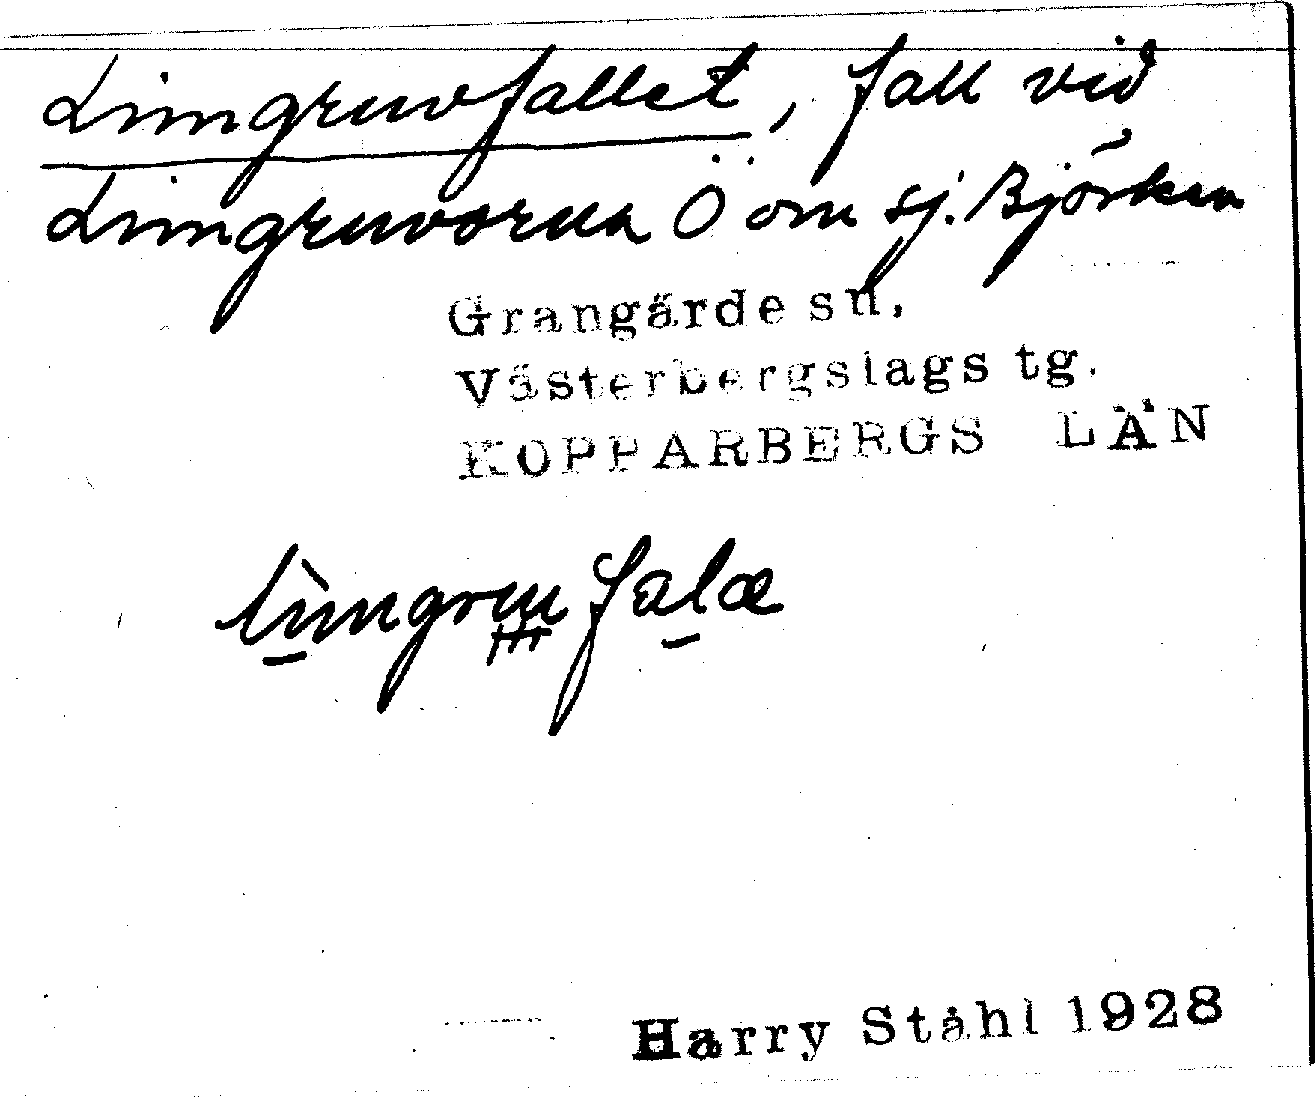 Limgruvfallet, fall vid
Limgruvorna Ö om sj. Björken
Grangärde sn.
Västerbergslags tg.
KOPPARBERGS LÄN
Harry Ståhl 1928